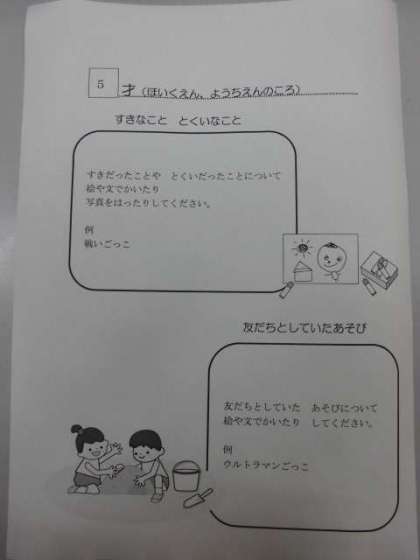 5 才（ほいくえん、ようちえんのころ）
すきなこと　とくいなこと
すきだったことや　とくいだったことについて
絵や文でかいたり
写真をはったりしてください。
例
戦いごっこ
友だちとしていたあそび
友だちとしていた　あそびについて
絵や文でかいたり　してください。
例
ウルトラマンごっこ